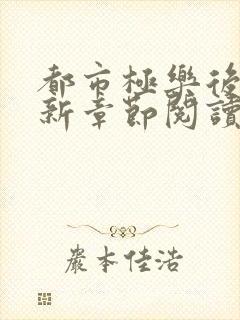 都市極樂後
新章節閱讀
嚴本佳浩